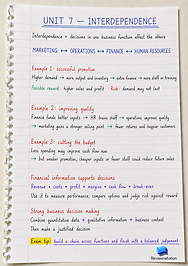 UNIT 7 — INTERDEPENDENCE
Interdependence = decisions in one business function affect the others
MARKETING ↔ OPERATIONS ↔ FINANCE ↔ HUMAN RESOURCES
Example 1: successful promotion
Higher demand → more output and inventory → extra finance → more staff or training
Possible reward: higher sales and profit Risk: demand may not last
Example 2: improving quality
Finance funds better inputs → HR trains staff → operations improve quality
→ marketing gains a stronger selling point → fewer returns and happier customers
Example 3: cutting the budget
Less spending may improve cash flow now
→ but weaker promotion, cheaper inputs or fewer staff could reduce future sales
Financial information supports decisions
Revenue • costs • profit • margins • cash flow • break-even
Use it to measure performance, compare options and judge risk against reward
Strong business decision making
Combine quantitative data + qualitative information + business context
Then make a justified decision
Exam tip: build a chain across functions and finish with a balanced judgement
Revisionstation